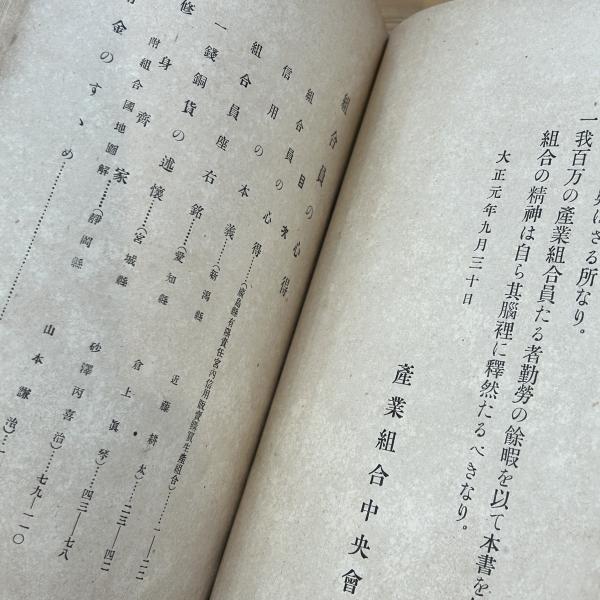 はざる所なり。
一我百万の產業組合員たる者勤勞の餘暇を以て本書を
組合の精神は自ら其腦裡に釋然たるべきなり。
大正元年九月三十日
產業組合中央會
組合員の心得
目次
組合員の心得……(廣島縣有限責任宮內信用販賣購買生產組合)……一—二二
信用の本義……(新潟縣 近藤耕太)……二三—四二
組合員座右銘……(愛知縣 倉上眞琴)……四三—七八
一錢銅貨の述懷……(宮城縣 砂澤丙喜治)……七九—一一〇
修身齊家……(靜岡縣 山本謙治)
附組合國地圖解
金のすゝめ